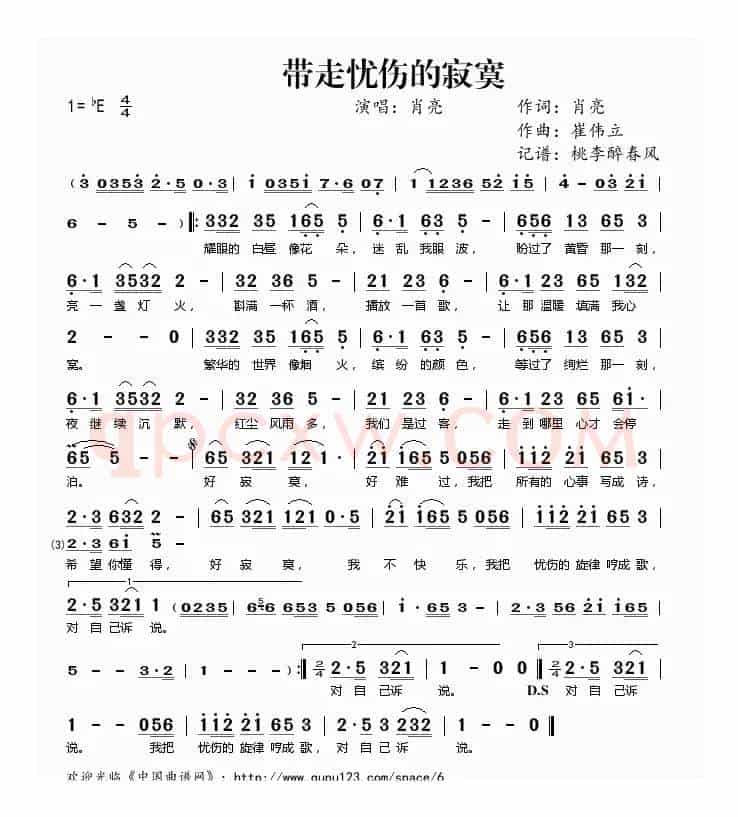 带走忧伤的寂寞
1=♭E 4/4
演唱：肖亮
作词：肖亮
作曲：崔伟立
记谱：桃李醉春风
(3 0353 2·5 0·3 | 1 0351 7·6 07 | 1 1236 52 15 | 4 - 03 21 |
6 - 5 - ) ‖: 332 35 165 5 | 6·1 63 5 - | 656 13 65 3 |
耀眼的 白昼 像花 朵，迷 乱我眼 波， 盼过了 黄昏 那一 刻，
6·1 3532 2 - | 32 36 5 - | 21 23 6 - | 61 23 65 132 |
亮 一 盏 灯 火， 斟满 一杯 酒， 播放 一首 歌， 让 那 温暖 填满 我心
2 - - 0 | 332 35 165 5 | 6·1 63 5 - | 656 13 65 3 |
窝。 繁华的 世界 像烟 火，缤 纷 的颜 色， 等过了 绚烂 那一 刻，
6·1 3532 2 - | 32 36 5 - | 21 23 6 - | 6·1 23 65 61· |
夜 继 续 沉 默， 红尘 风雨 多， 我们 是过 客， 走 到 哪里 心才 会停
65 5 - - | 65 321 12 1 | 21 165 5 056 | 112 21 65 5 |
泊。 好 寂 寞， 好 难 过，我把 所有的 心事 写成 诗，
2·3 632 2 - | 65 321 121 0·5 | 21 165 5 056 | 112 21 65 5 |
(3) 2·3 61 5 -
希 望 你懂 得， 好 寂 寞， 我 不 快 乐，我把 忧伤的 旋律 哼成 歌，
1
2·5 321 1 (0235 | 6 6·653 5 056 | 1· 65 3 - | 2·3 56 21 165 |
对 自 己诉 说。
2 3
5 - - 3·2 | 1 - - - ) :‖ 2/4 2·5 321 | 1 - 0 0 ‖ 2/4 2·5 321 |
对 自 己诉 说。 D.S 对 自 己诉
1 - - 056 | 112 21 65 5 | 2·5 3 232 | 1 - - 0 ‖
说。 我把 忧伤的 旋律 哼成 歌， 对 自 己诉 说。
qpcxw.COM
欢迎光临《中国曲谱网》：http://www.qupu123.com/space/6